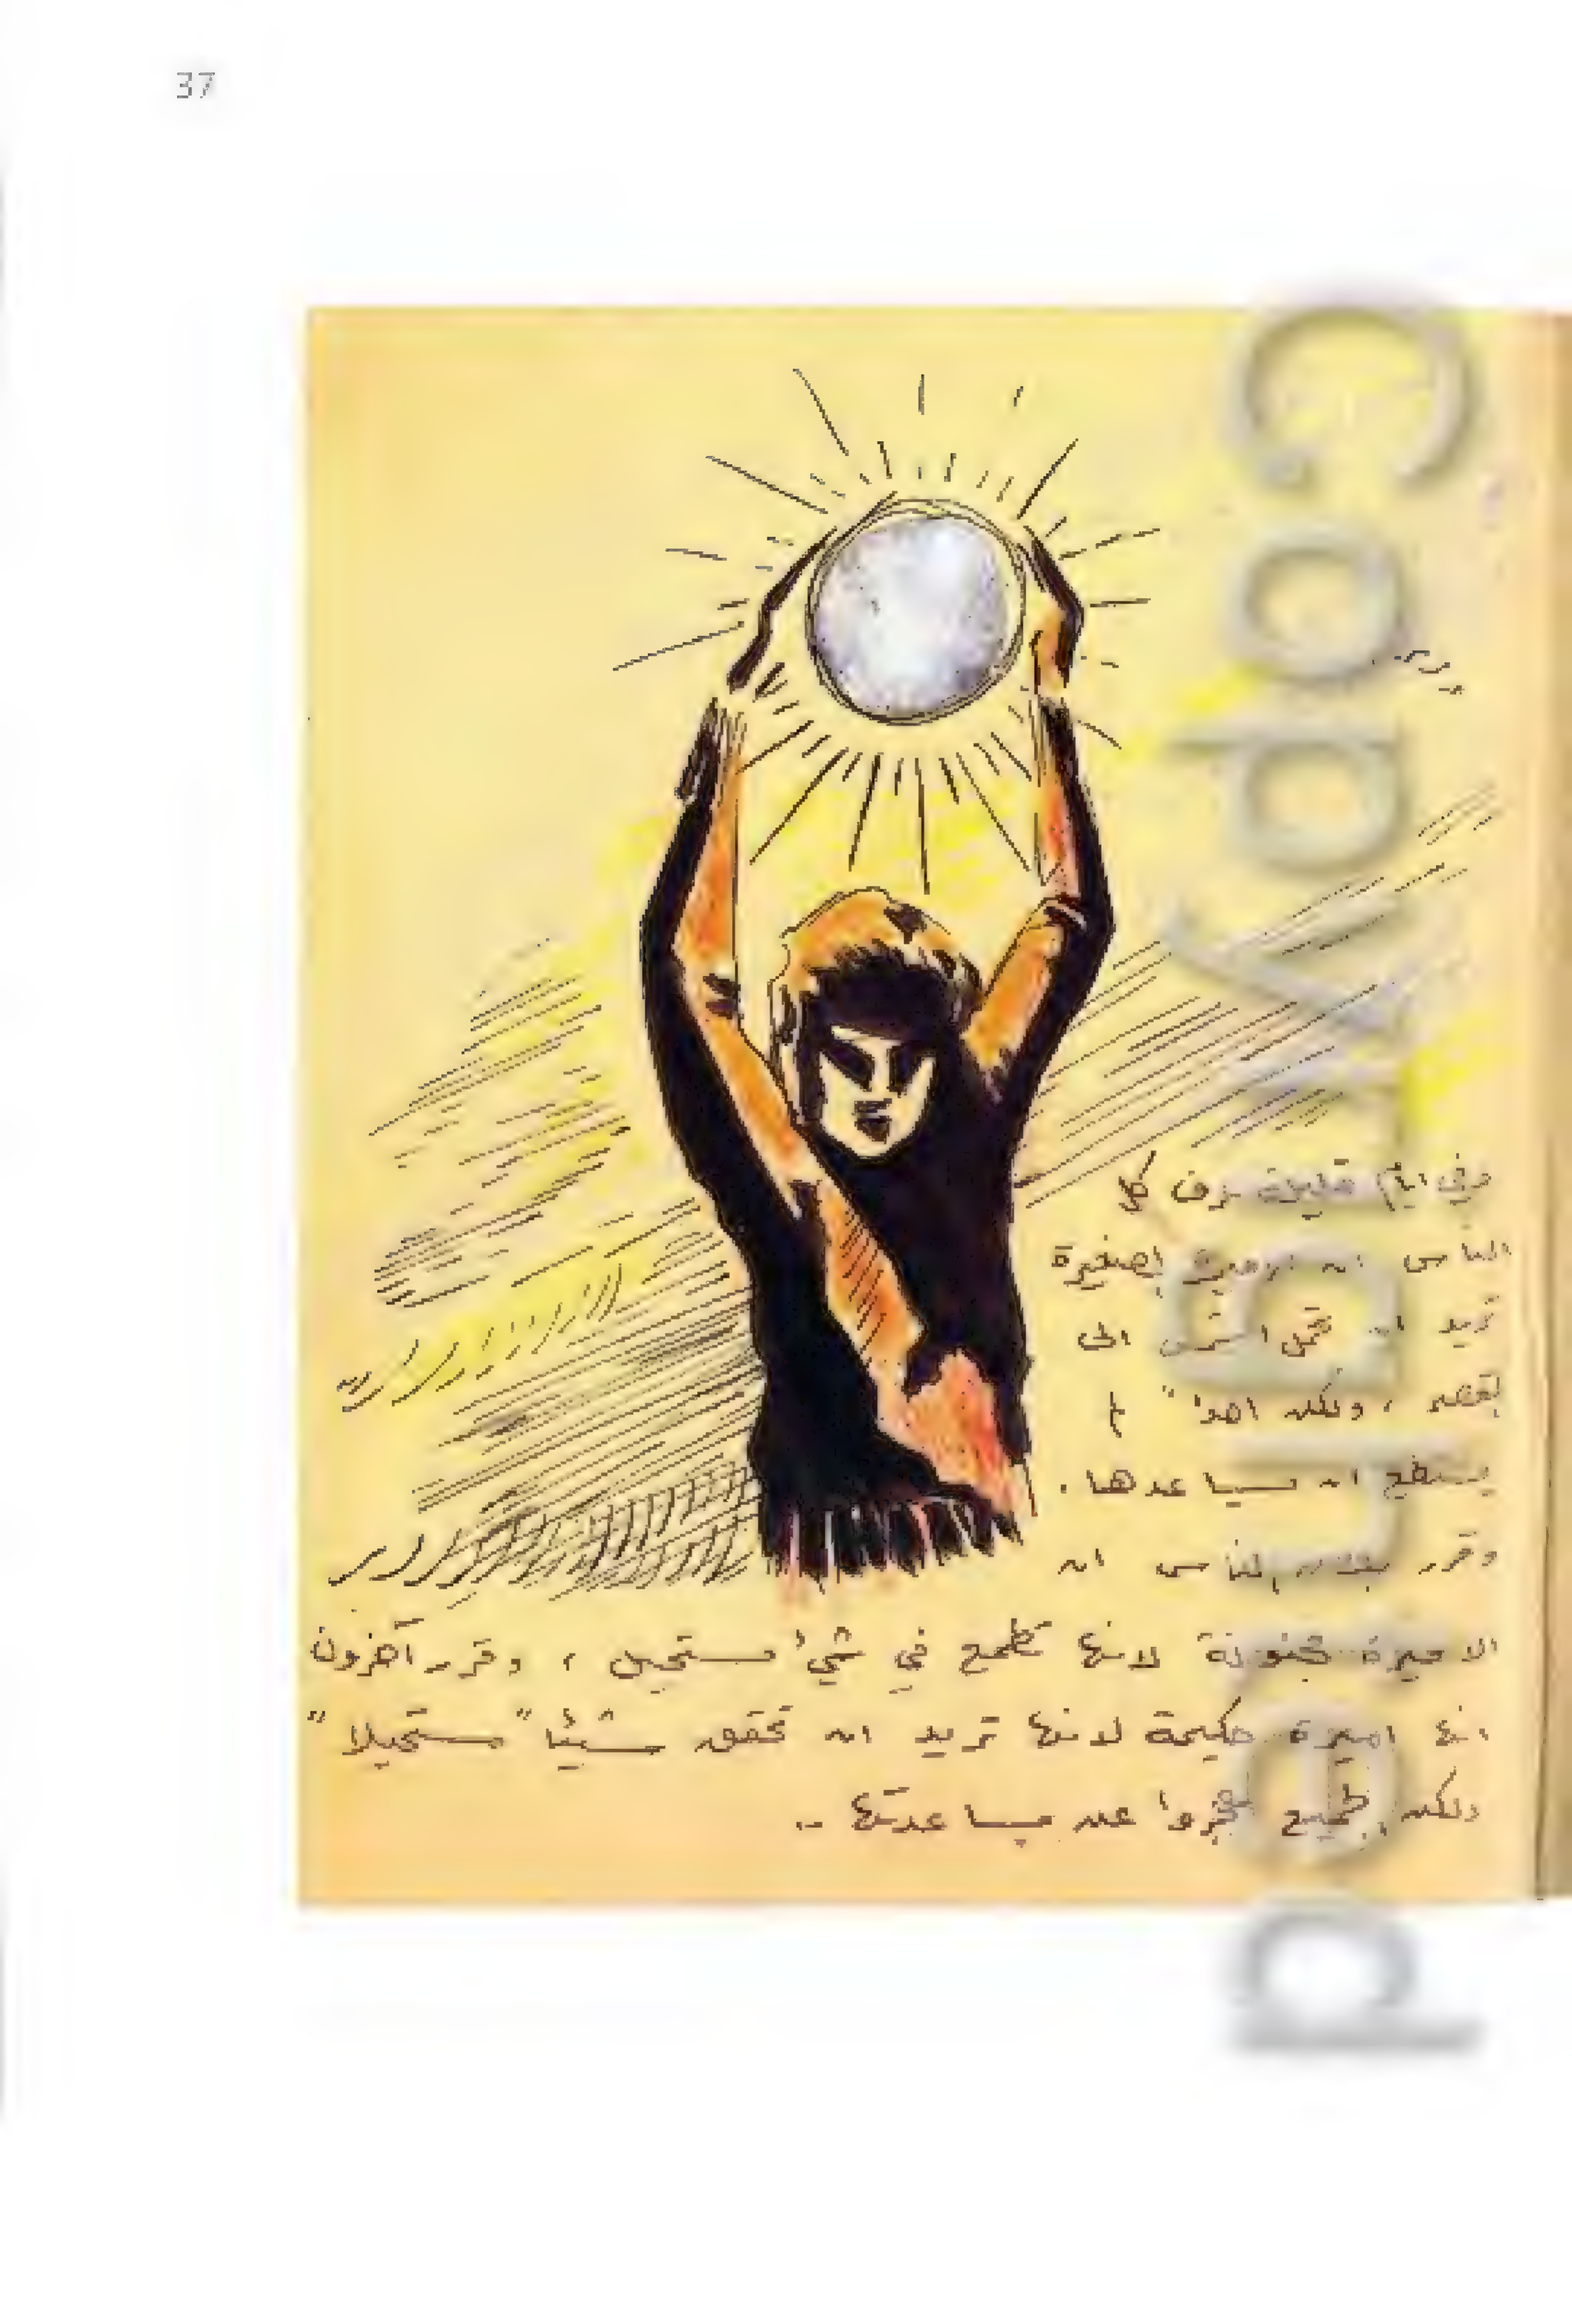 37
وفي ايام قليلة عرف كل
الناس ان الاميرة الصغيرة
تريد ان تحمل الشمس الى
القصر ، ولكن احدا" لم
يستطع ان يساعدها .
وقرر بعض الناس ان
الاميرة مجنونة لانها تطمح في شيء مستحيل ، وقرر آخرون
انها اميرة حكيمة لانها تريد ان تحقق شيئا" مستحيلا"
ولكن الجميع عجزوا عن مساعدتها ..
Copyrighted